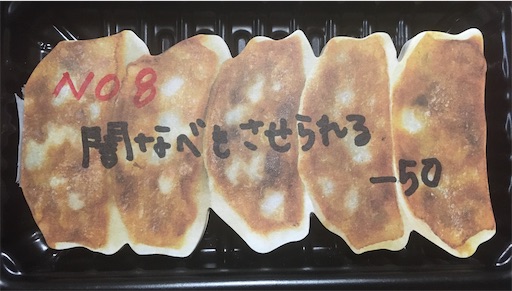 NO8
闇なべをさせられる
-50